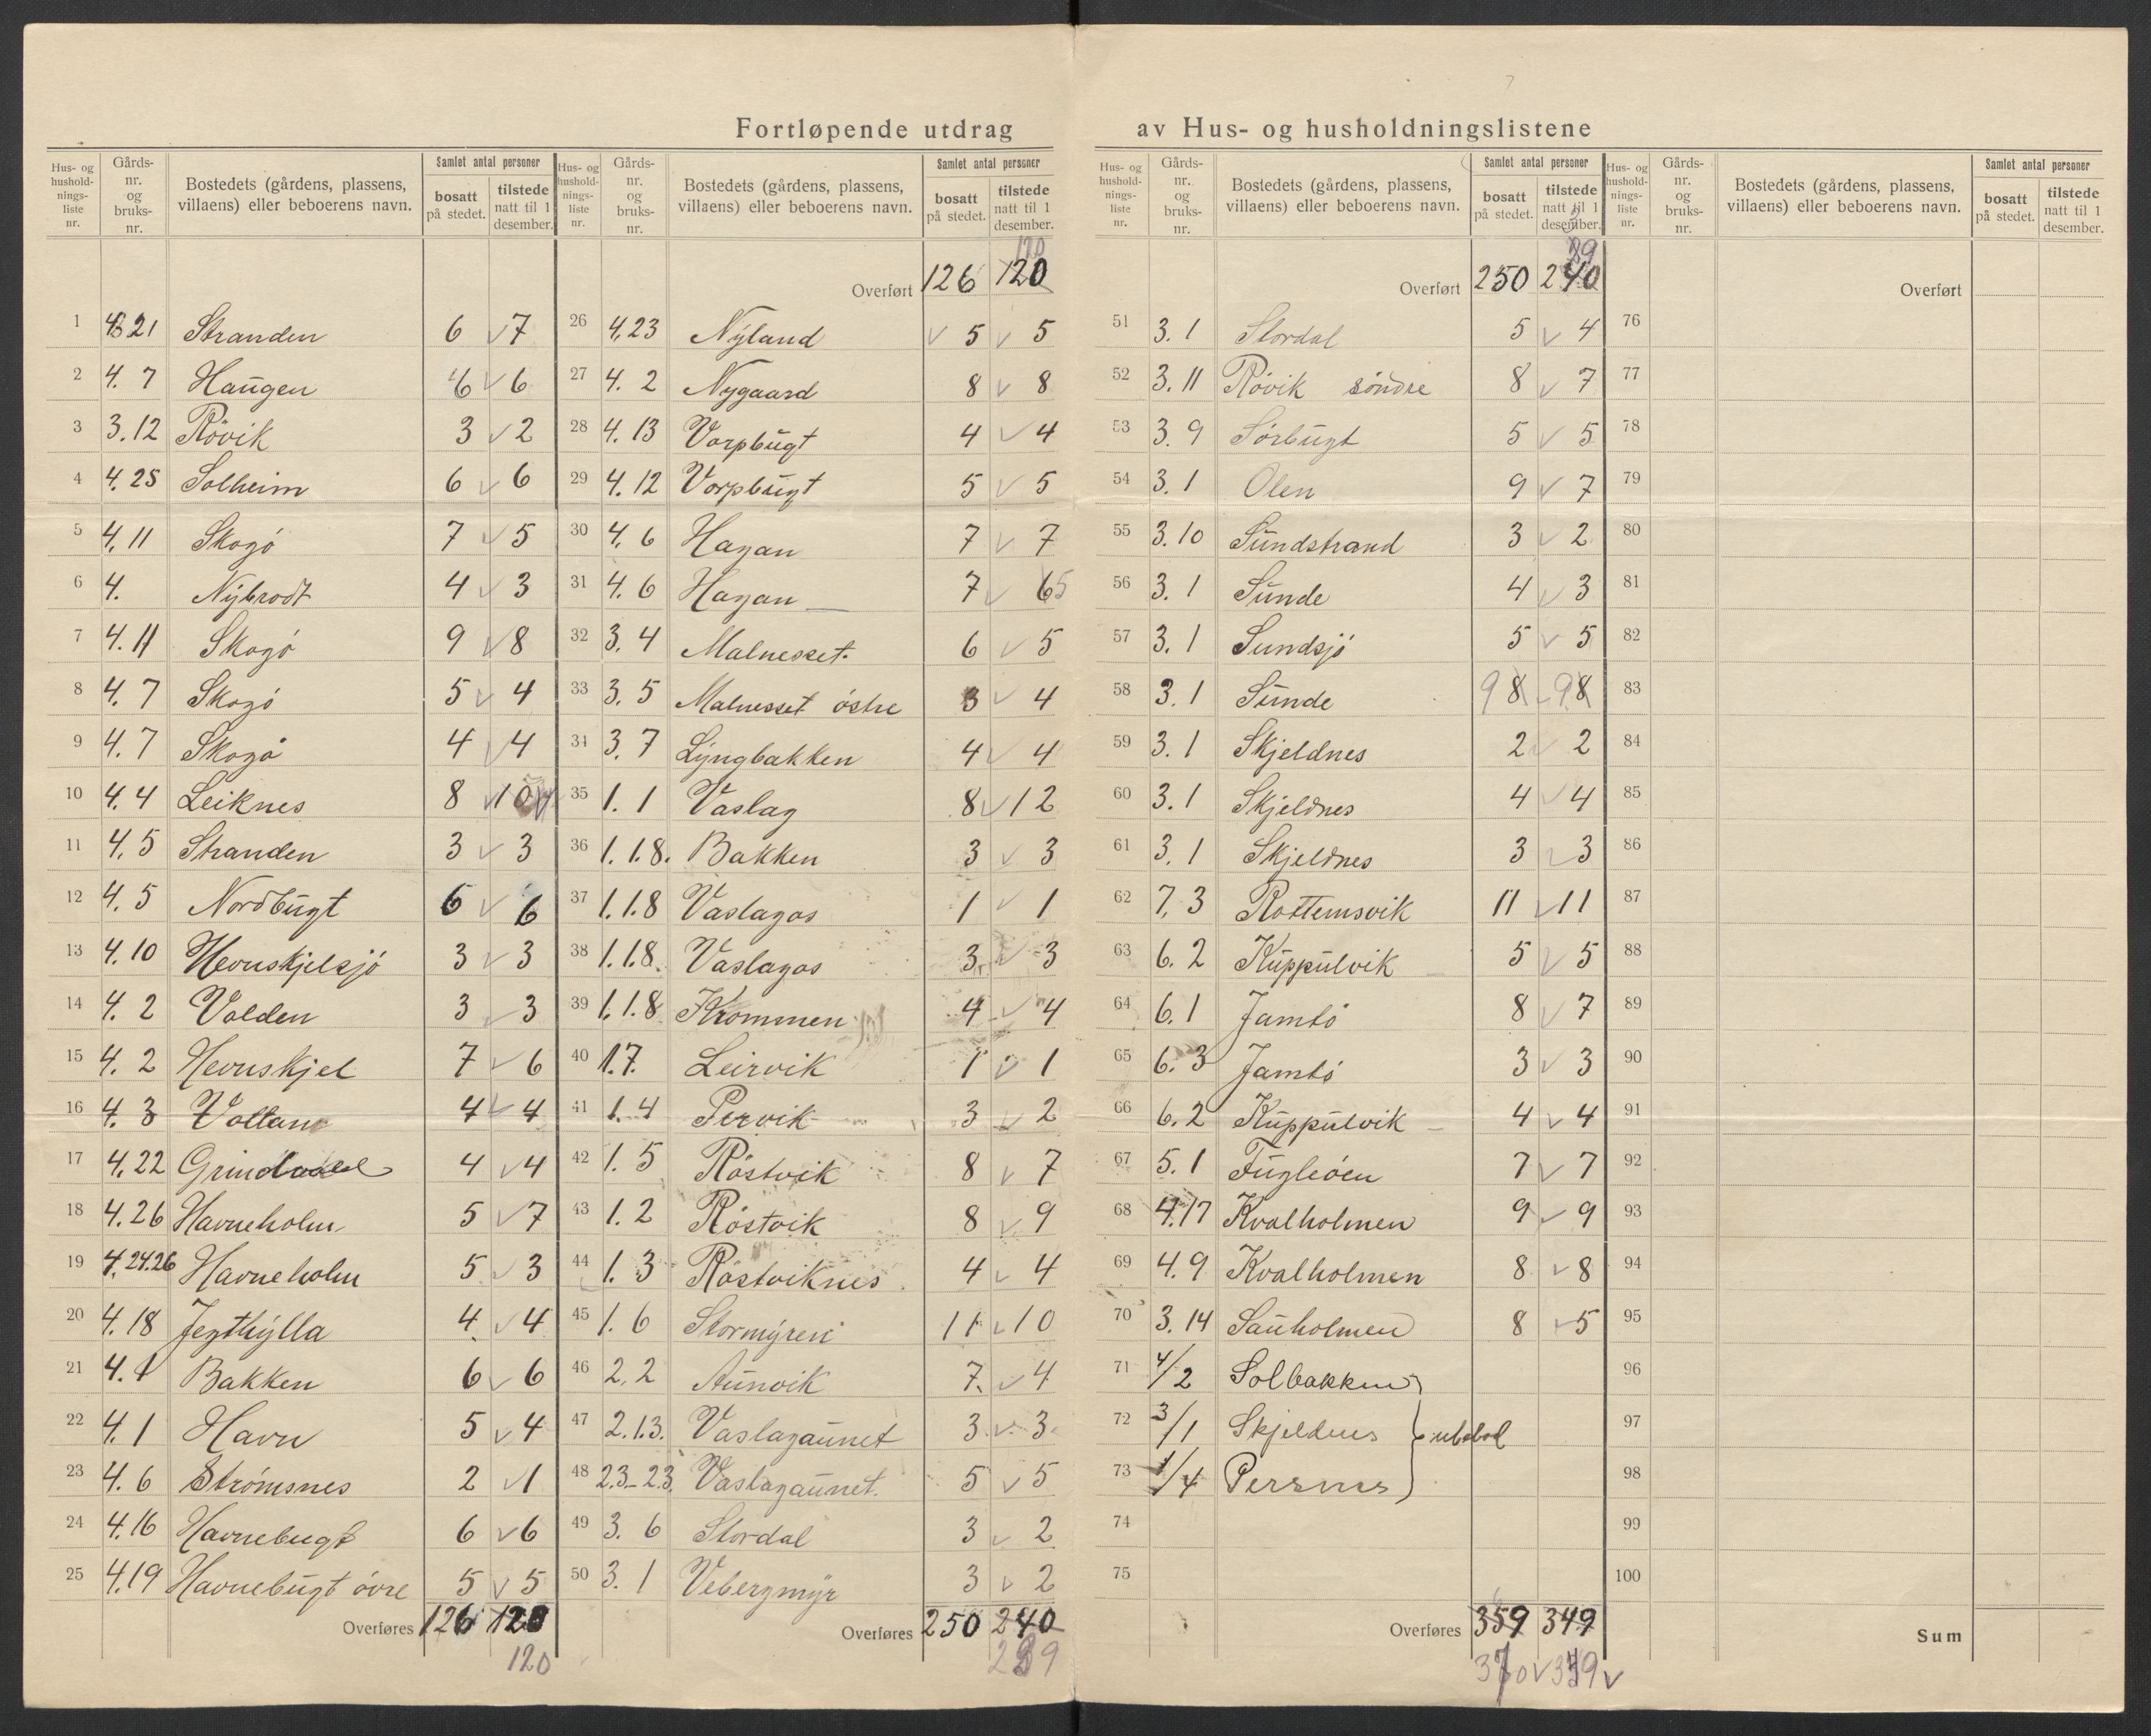 Fortløpende utdrag av Hus- og husholdningslistene
Hus- og husholdningsliste nr. | Gårds- nr. og bruks- nr. | Bostedets (gårdens, plassens, villaens) eller beboerens navn. | Samlet antal personer | bosatt på stedet. | tilstede natt til 1 desember.
1 4.21 Stranden 6 7
2 4. 7 Haugen 6 6
3 3.12 Røvik 3 2
4 4.25 Solheim 6 6
5 4.11 Skogø 7 5
6 4. Nybrodt 4 3
7 4.11 Skogø 9 8
8 4. 7 Skogø 5 4
9 4. 7 Skogø 4 4
10 4. 4 Leiknes 8 10
11 4. 5 Stranden 3 3
12 4. 5 Nordbugt 6 6
13 4.10 Hevnskjelsjø 3 3
14 4. 2 Volden 3 3
15 4. 2 Hevnskjel 7 6
16 4. 3 Voltan 4 4
17 4.22 Grindvold 4 4
18 4.26 Havneholm 5 7
19 4.24.26 Havneholm 5 3
20 4.18 Jegthylla 4 4
21 4.1 Bakken 6 6
22 4.1 Havn 5 4
23 4. 6 Strømsnes 2 1
24 4.16 Havnebugt 6 6
25 4.19 Havnebugt øvre 5 5
Overføres 126 120
120
Hus- og husholdningsliste nr. | Gårds- nr. og bruks- nr. | Bostedets (gårdens, plassens, villaens) eller beboerens navn. | Samlet antal personer | bosatt på stedet. | tilstede natt til 1 desember.
120
Overført 126 120
26 4.23 Nyland 5 5
27 4. 2 Nygaard 8 8
28 4. 13 Vorpbugt 4 4
29 4. 12 Vorpbugt 5 5
30 4. 6 Hagan 7 7
31 4. 6 Hagan 7 6 5
32 3. 4 Malnesset 6 5
33 3. 5 Malnesset østre 3 4
34 3. 7 Lyngbakken 4 4
35 1. 1 Vaslag 8 12
36 1.1.8. Bakken 3 3
37 1.1.8 Vaslagos 1 1
38 1.1.8. Vaslagos 3 3
39 1.1.8 Krommen 4 4
40 1.7. Leirvik 1 1
41 1.4 Pervik 3 2
42 1. 5 Røstvik 8 7
43 1. 2 Røstvik 8 9
44 1. 3 Røstviknes 4 4
45 1. 6 Stormyren 11 10
46 2. 2 Aunvik 7 4
47 2.1.3. Vaslagaunet 3 3
48 2.3-2.3. Vaslagaunet. 5 5
49 3. 6 Stordal 3 2
50 3. 1 Vebergmyr 3 2
Overføres 250 240
239
Hus- og husholdningsliste nr. | Gårds- nr. og bruks- nr. | Bostedets (gårdens, plassens, villaens) eller beboerens navn. | Samlet antal personer | bosatt på stedet. | tilstede natt til 1 desember.
Overført 250 240
51 3. 1 Stordal 5 4
52 3. 11 Røvik søndre 8 7
53 3. 9 Sørbugt 5 5
54 3. 1 Olen 9 7
55 3. 10 Sundstrand 3 2
56 3. 1 Sunde 4 3
57 3. 1 Sundsjø 5 5
58 3. 1 Sunde 9 8 9 8
59 3. 1 Skjeldnes 2 2
60 3. 1 Skjeldnes 4 4
61 3. 1 Skjeldnes 3 3
62 7. 3 Rottemsvik 11 11
63 6. 2 Kuppulvik 5 5
64 6. 1 Jamtø 8 7
65 6. 3 Jamtø 3 3
66 6. 2 Kuppulvik 4 4
67 5. 1 Fugleøen 7 7
68 4.17 Kvalholmen 9 9
69 4. 9 Kvalholmen 8 8
70 3. 14 Sauholmen 8 5
71 4/2 Solbakken
72 3/1 Skjeldnes ubebod
73 1/4 Persnes
74
75
Overføres 359 349
Hus- og husholdningsliste nr. | Gårds- nr. og bruks- nr. | Bostedets (gårdens, plassens, villaens) eller beboerens navn. | Samlet antal personer | bosatt på stedet. | tilstede natt til 1 desember.
Overført
76
77
78
79
80
81
82
83
84
85
86
87
88
89
90
91
92
93
94
95
96
97
98
99
100
Sum